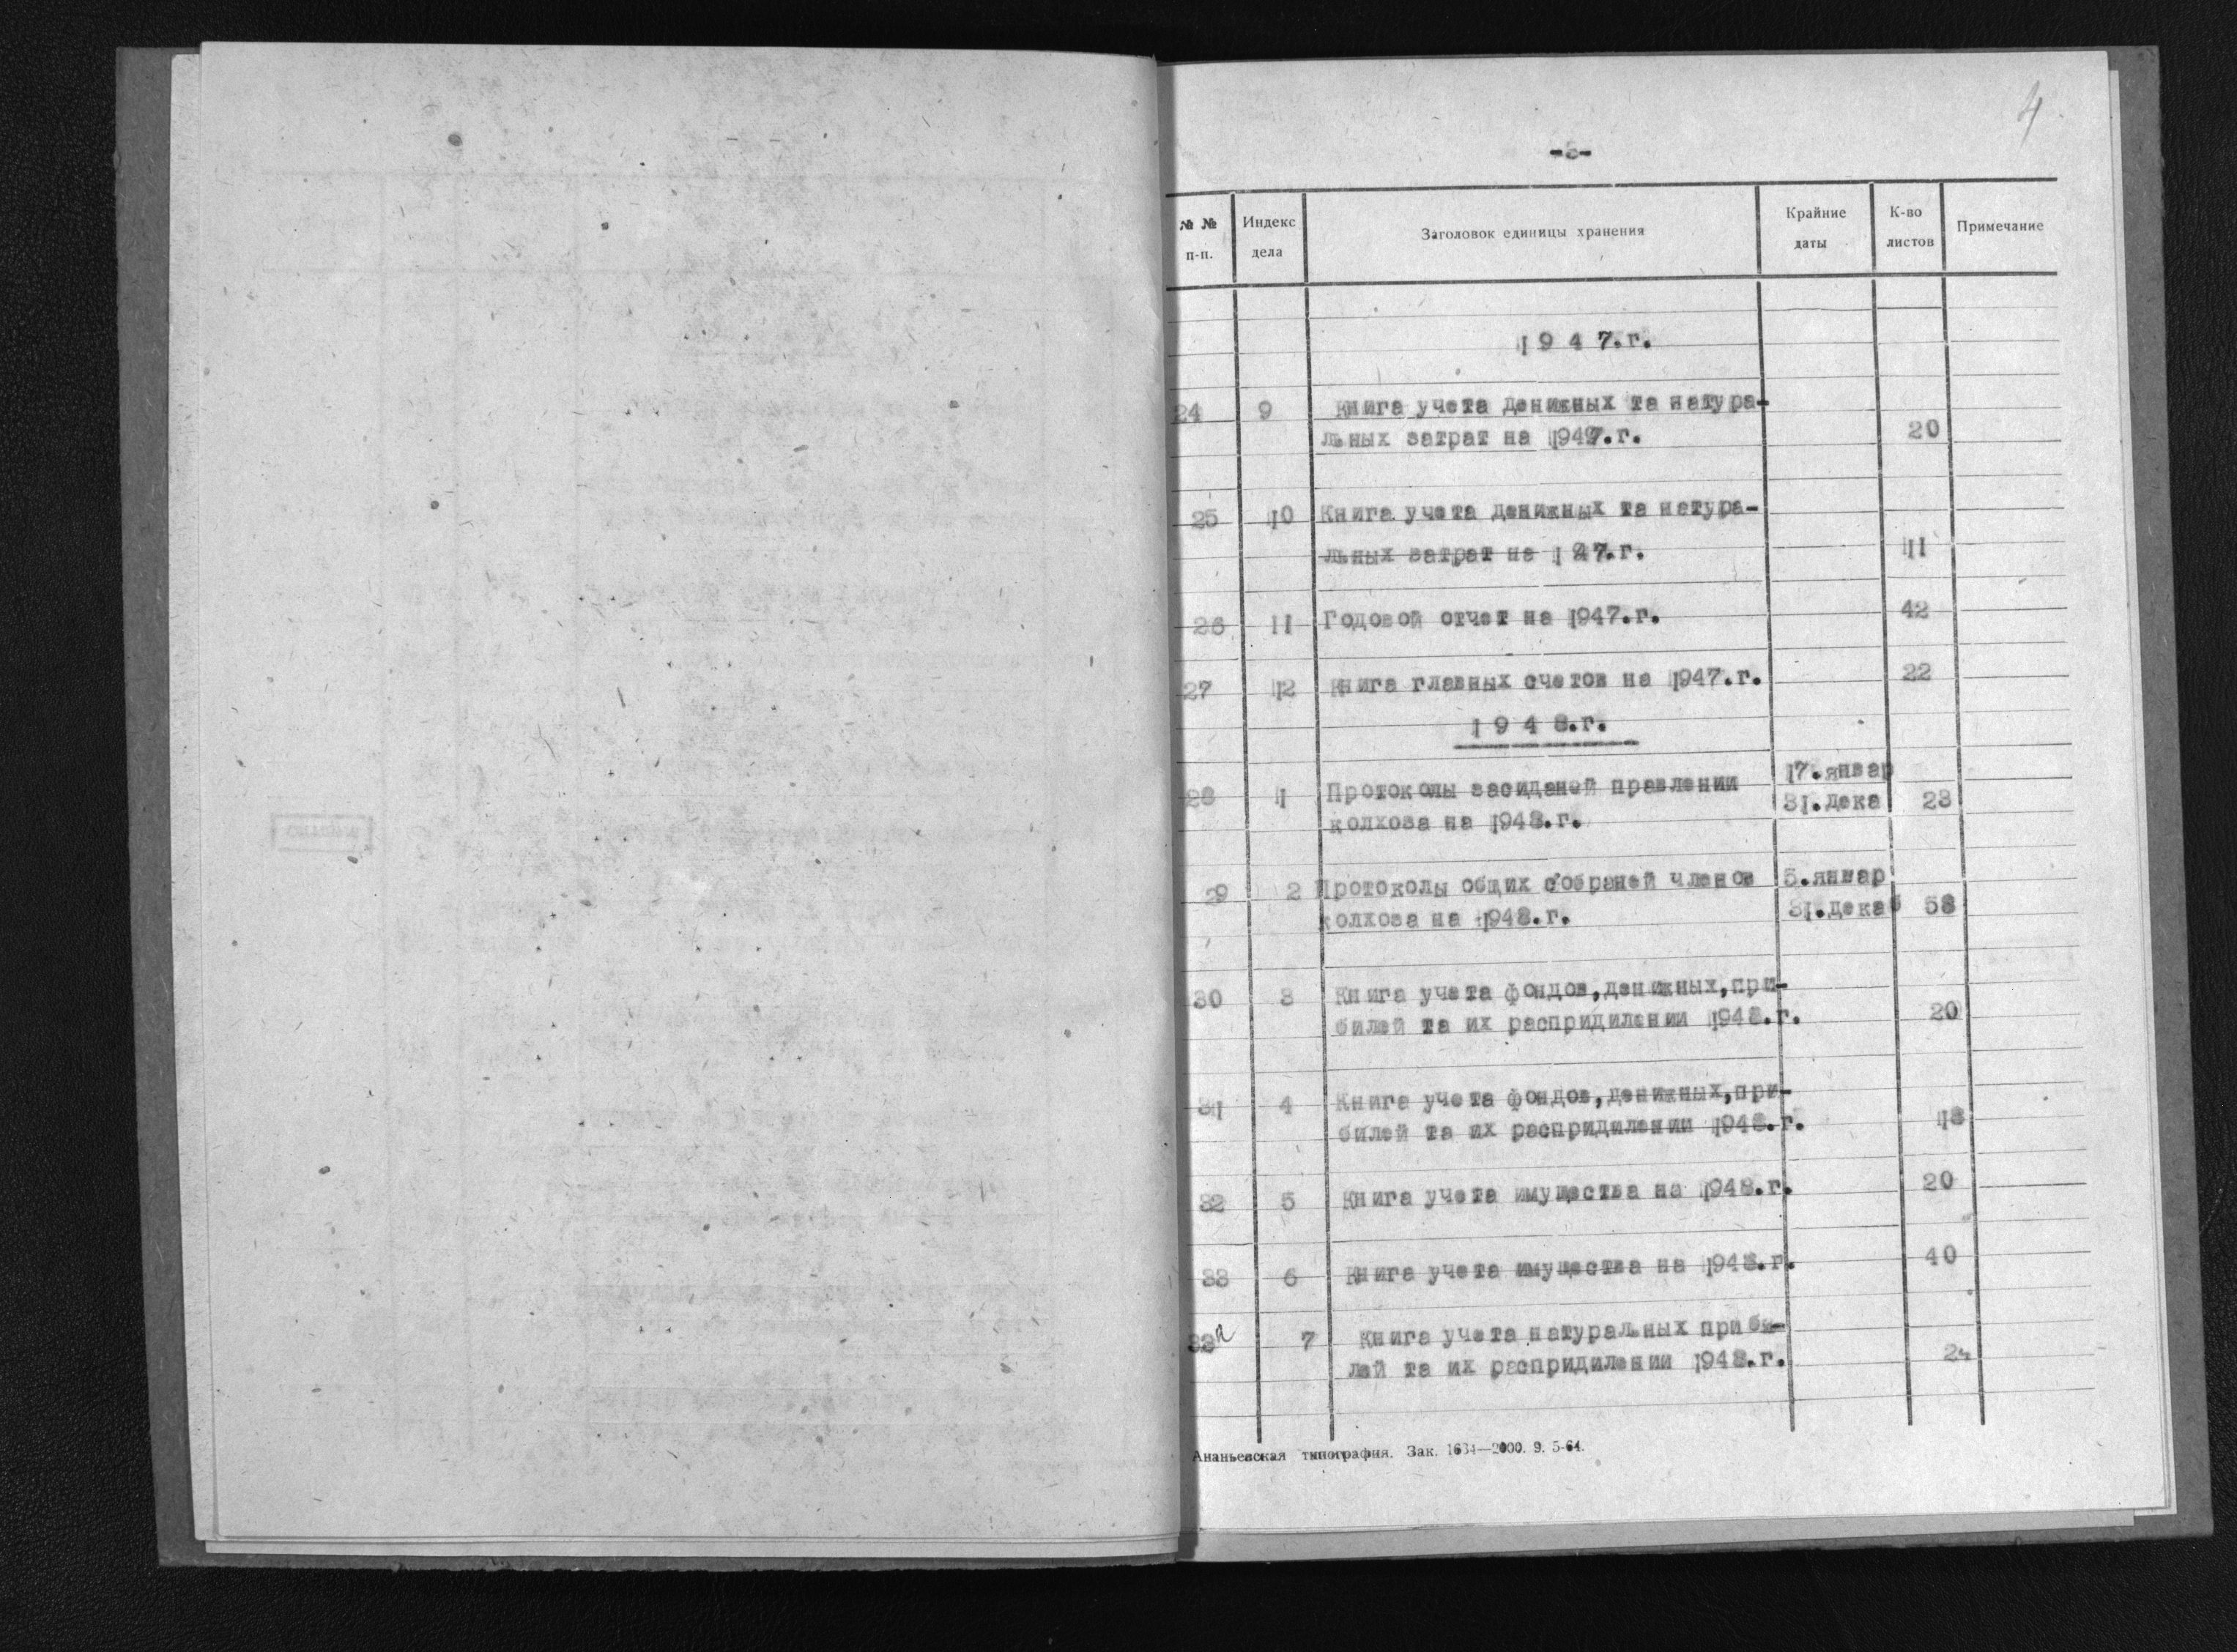 4
-3-
№ № п-п. Индекс дела Заголовок единицы хранения Крайние даты К-во листов Примечание
1 9 4 7.г.
24 9 Книга учета денижных та натура-
льных затрат на 1947.г. 20
25 10 Книга учета денижных та натура-
льных затрат на 1 47.г. 11
26 11 Годовой отчет на 1947.г. 42
27 12 Книга главных счетов на 1947.г. 22
1 9 4 8.г.
28 1 Протоколы засиданей правлении 17.январ
колхоза на 1948.г. 31.дека 23
29 2 Протоколы общих собраней членов 5.январ
колхоза на 1948.г. 31.декаб 58
30 3 Книга учета фондов,денижных,при-
билей та их распридилении 1948.г. 20
31 4 Книга учета фондов,денижных,при-
билей та их распридилении 1948.г. 18
32 5 Книга учета имущества на 1948.г. 20
33 6 Книга учета имущества на 1948.г. 40
33а 7 Книга учета натуральных приби-
лей та их распридилении 1948.г. 24
Ананьевская типография. Зак. 1634—2000. 9. 5-64.